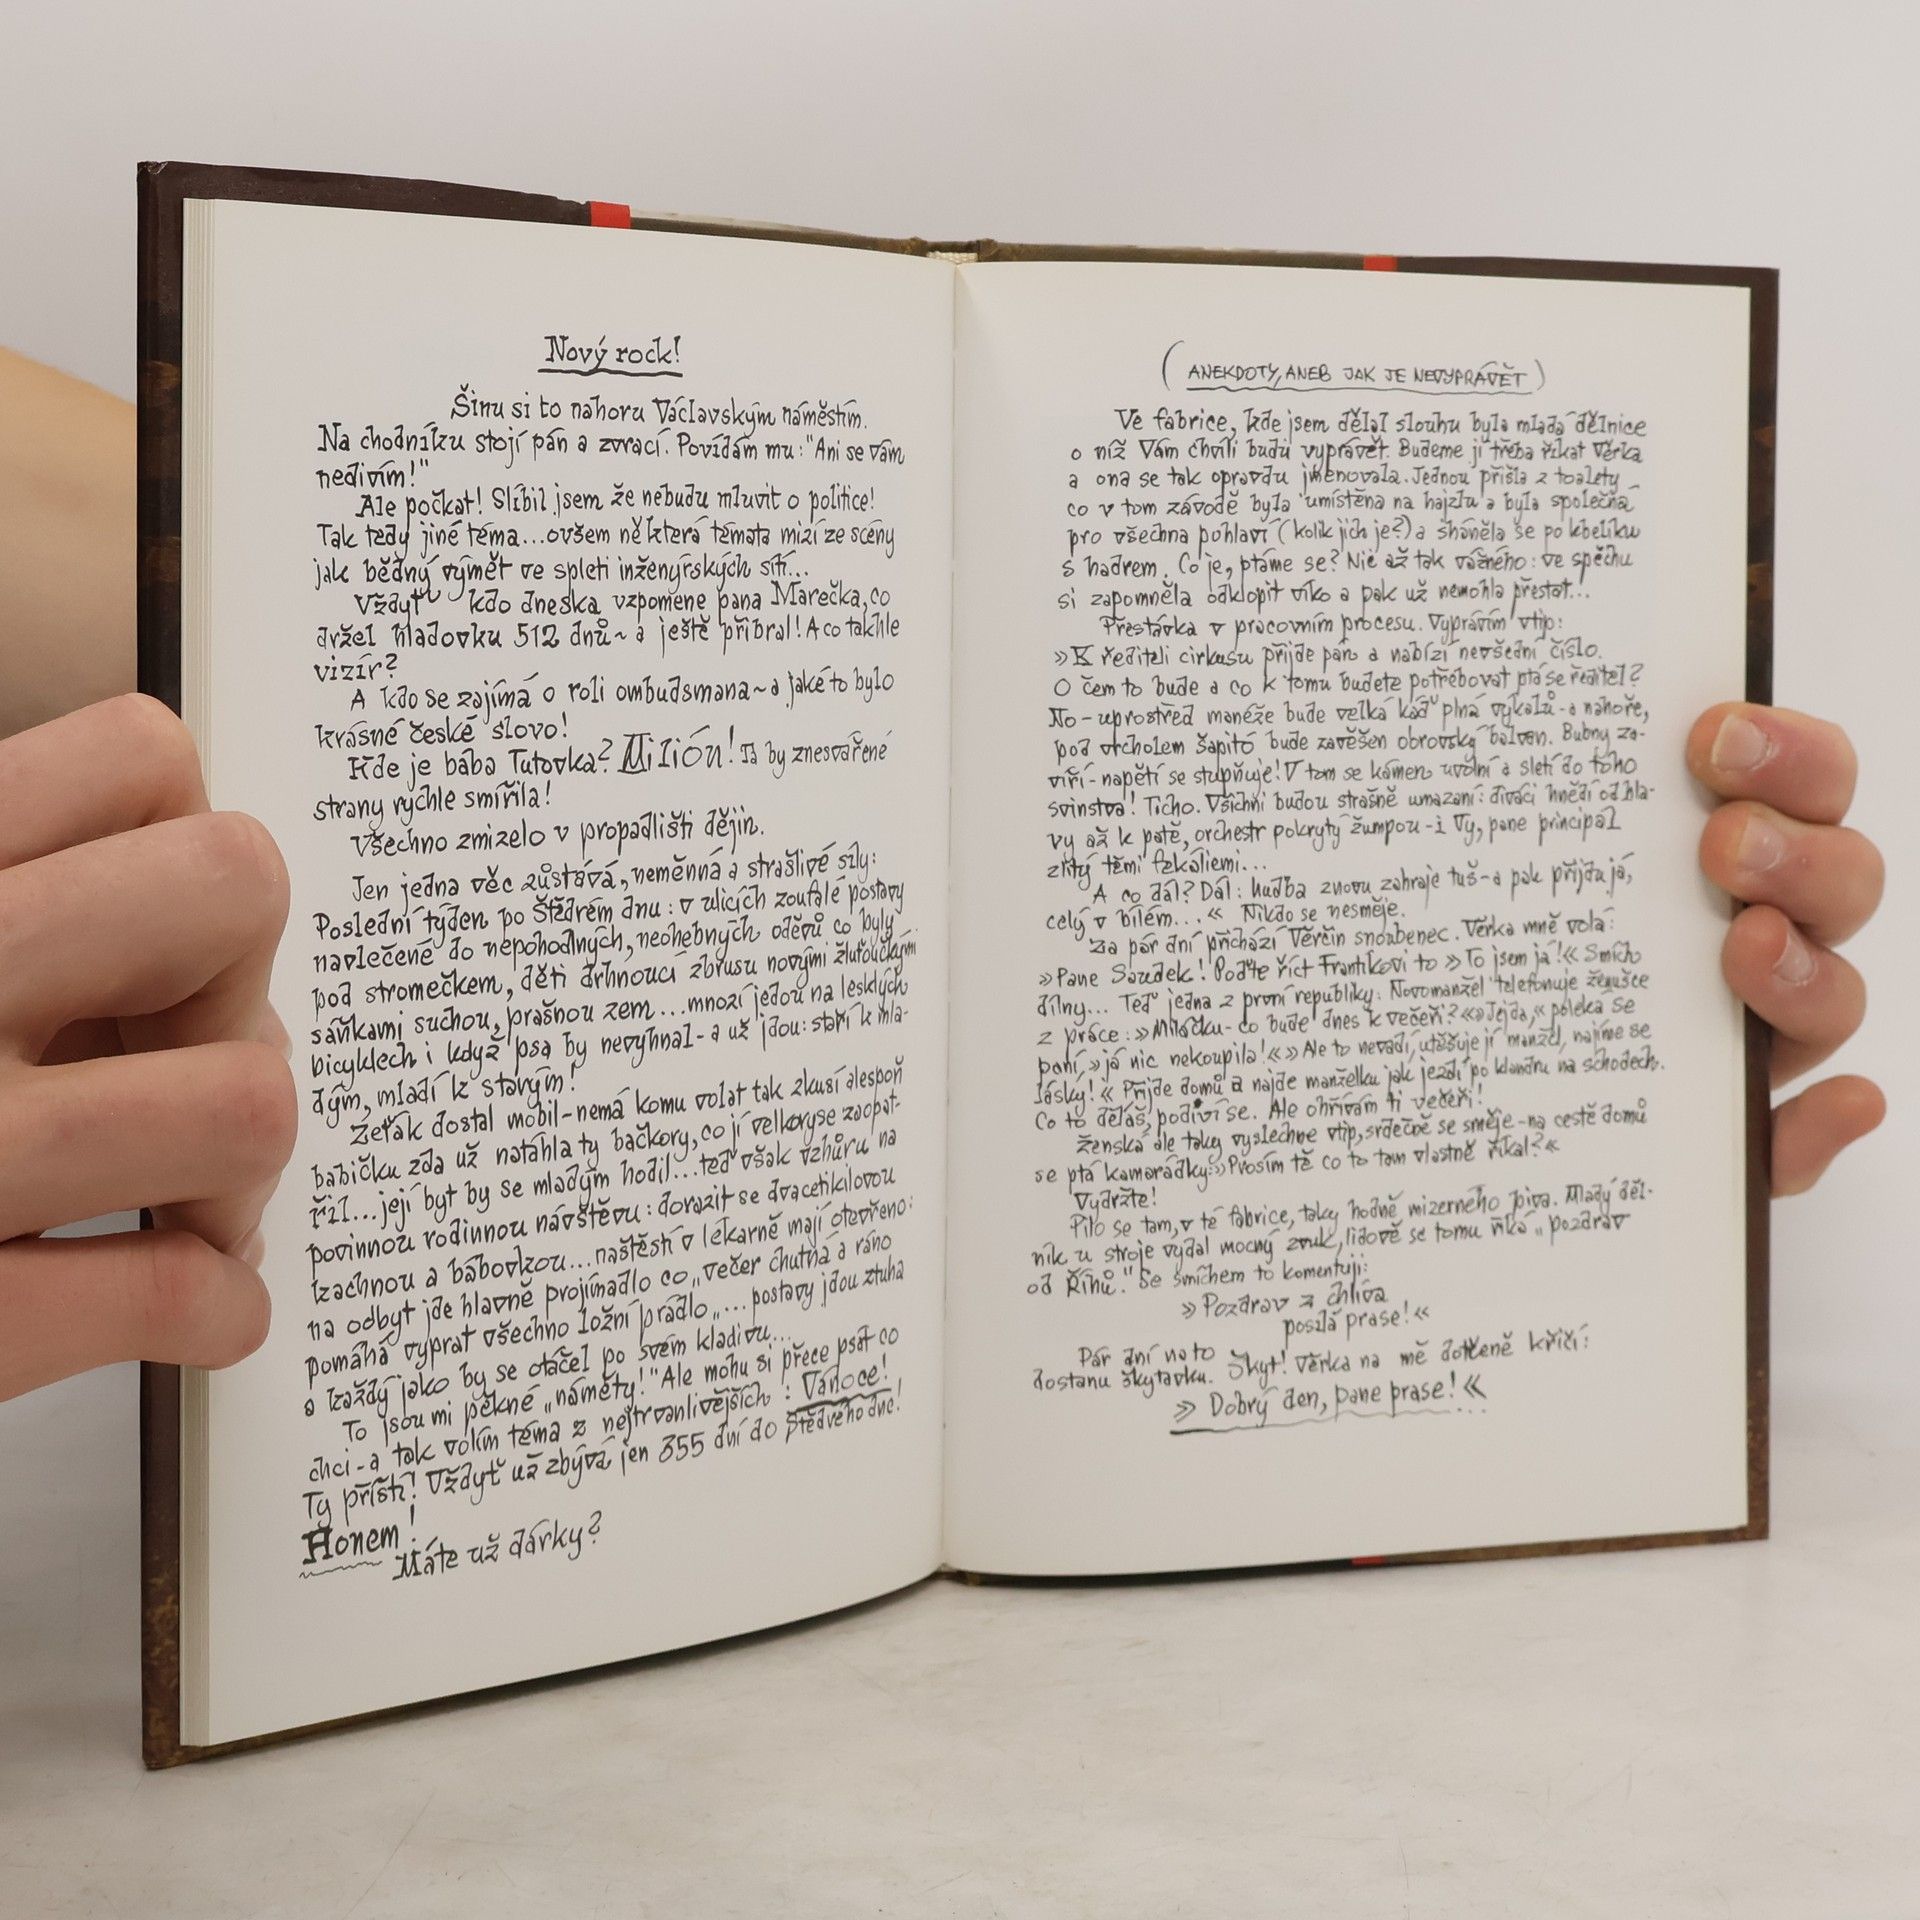 Nový rock!
Šinu si to nahoru Václavským náměstím.
Na chodníku stojí pán a zvrací. Povídám mu: "Ani se vám
nedivím!"
Ale počkat! Slíbil jsem že nebudu mluvit o politice!
Tak tedy jiné téma...ovšem některá témata mizí ze scény
jak bědný výmět ve spleti inženýrských sítí...
Vždyť kdo dneska vzpomene pana Marečka, co
držel hladovku 512 dnů ~ a ještě přibral! A co takhle
vizír?
A kdo se zajímá o roli ombudsmana ~ a jaké to bylo
krásné české slovo!
Kde je bába Tutovka? Milión! Ta by znesvářené
strany rychle smířila!
Všechno zmizelo v propadlišti dějin.
Jen jedna věc zůstává, neměnná a strašlivé síly:
Poslední týden po Štědrém dnu: v ulicích zoufalé postavy
navlečené do nepohodlných, neohebných oděvů co byly
pod stromečkem, děti drhnoucí zbrusu novými žluťoučkými
sáňkami suchou, prašnou zem...mnozí jedou na lesklých
bicyklech i když psa by nevyhnal - a už jdou: staří k mla-
dým, mladí k starým!
Zeťák dostal mobil - nemá komu volat tak zkusí alespoň
babičku zda už natáhla ty bačkory, co jí velkoryse zaopat-
řil...její byt by se mladým hodil...teď však vzhůru na
povinnou rodinnou návštěvu: dorazit se dvacetikilovou
kachnou a bábovkou...naštěstí v lékárně mají otevřeno:
na odbyt jde hlavně projímadlo co „večer chutná a ráno
pomáhá vyprat všechno ložní prádlo„... postavy jdou ztuha
a každý jako by se otáčel po svém kladivu...
To jsou mi pěkné „náměty!" Ale mohu si přece psát co
chci - a tak volím téma z nejtrvanlivějších: Vánoce!
Ty příští! Vždyť už zbývá jen 355 dní do Štědrého dne!
Honem!
Máte už dárky?
(ANEKDOTY, ANEB JAK JE NEVYPRÁVĚT)
Ve fabrice, kde jsem dělal slouhu byla mladá dělnice
o níž Vám chvíli budu vyprávět. Budeme jí třeba říkat Věrka
a ona se tak opravdu jmenovala. Jednou přišla z toalety
co v tom závodě byla umístěna na hajzlu a byla společná
pro všechna pohlaví (kolik jich je?) a sháněla se po kbelíku
s hadrem. Co je, ptáme se? Nic až tak vážného: ve spěchu
si zapomněla odklopit víko a pak už nemohla přestat...
Přestávka v pracovním procesu. Vyprávím vtip:
»K řediteli cirkusu přijde pán a nabízí nevšední číslo.
O čem to bude a co k tomu budete potřebovat ptá se ředitel?
No - uprostřed manéže bude velká káď plná výkalů - a nahoře,
pod vrcholem šapitó bude zavěšen obrovský balvan. Bubny za-
víří - napětí se stupňuje! V tom se kámen uvolní a sletí do toho
svinstva! Ticho. Všichni budou strašně umazaní: diváci hnědí od hla-
vy až k patě, orchestr pokrytý žumpou - i Vy, pane principál
zlitý těmi fekáliemi...
A co dál? Dál: hudba znovu zahraje tuš - a pak přijdu já,
celý v bílém...« Nikdo se nesměje.
Za pár dní přichází Věrčin snoubenec. Věrka mně volá:
»Pane Saudek! Poďte říct Frantíkovi to »To jsem já!« Smích
dílny... Teď jedna z první republiky: Novomanžel telefonuje ženušce
z práce: »Miláčku - co bude dnes k večeři?« »Jejda,« poleká se
paní, »já nic nekoupila!« »Ale to nevadí, utěšuje jí manžel, najíme se
lásky!« Přijde domů a najde manželku jak jezdí po klandru na schodech.
Co to děláš, podiví se. Ale ohřívám ti večeři!
Ženská ale taky vyslechne vtip, srdečně se směje - na cestě domů
se ptá kamarádky: »Prosím tě co to tam vlastně říkal?«
Vydržte!
Pilo se tam, v té fabrice, taky hodně mizerného piva. Mladý děl-
ník u stroje vydal mocný zvuk, lidově se tomu říká „pozdrav
od Říhů." Se smíchem to komentuji:
»Pozdrav z chlíva
posílá prase!«
Pár dní na to
dostanu škytavku. Škyt! Věrka na mě dotčeně křičí:
»Dobrý den, pane prase!«